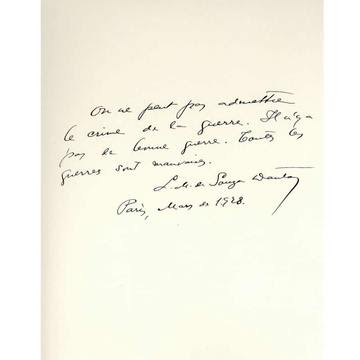 On ne peut pas admettre
le crime de la guerre. Il n'y a
pas de bonne guerre. Toutes les
guerres sont mauvaises.
L. M. de Souza Dantas
Paris, Mars de 1928.